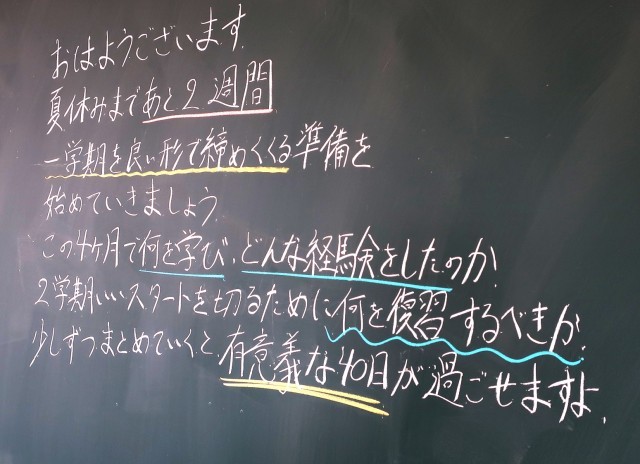 おはようございます.
夏休みまであと2週間
一学期を良い形で締めくくる準備を
始めていきましょう.
この4ヶ月で何を学び、どんな経験をしたのか.
2学期いいスタートを切るために何を復習するべきか.
少しずつまとめていくと有意義な40日が過ごせますよ.